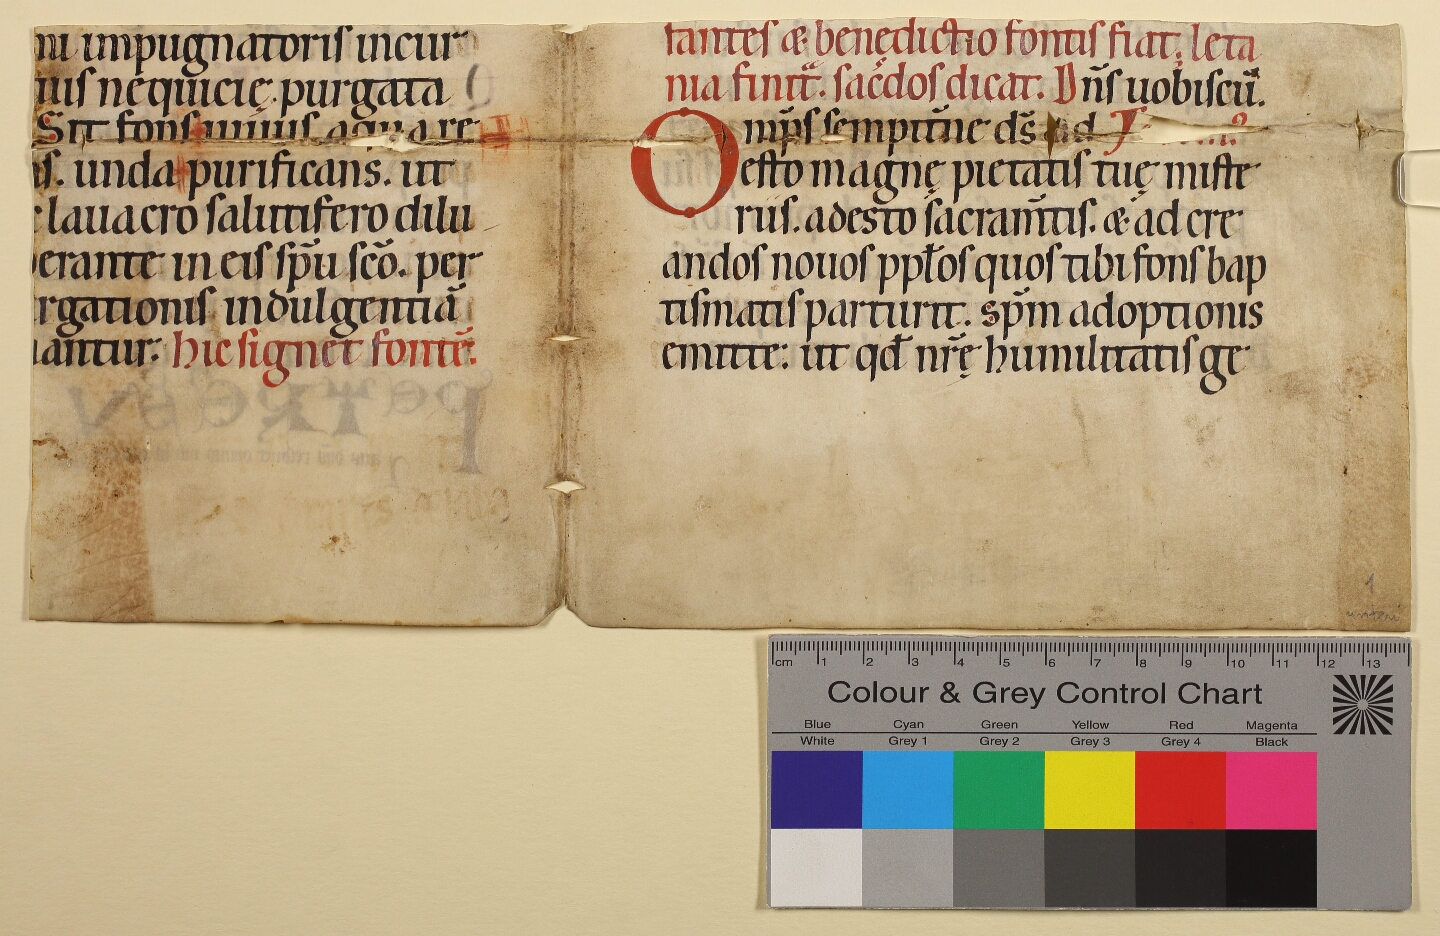 ni impugnatoris incur
tius nequicię. purgata
Sit fons uiuus. aqua re
ns. unda purificans. ut
c lauacro salutifero dilu
perante in eis sp̄u sc̄o. per
rgationis indulgentiā
antur. hic signet fontē.
tantes & benedictio fontis fiat. leta
nia finit̄. sac̄dos dicat. Dn̄s uobiscū.
Omp̄s sempit̄ne ds̄ ad
esto magnę pietatis tuę miste
riis. adesto sacram̄tis. & ad cre
andos nouos pp̄los quos tibi fons bap
tismatis parturit. sp̄m adoptionis
emitte: ut qđ nr̄ę humilitatis ge
1
cm 1 2 3 4 5 6 7 8 9 10 11 12 13
Colour & Grey Control Chart
Blue Cyan Green Yellow Red Magenta
White Grey 1 Grey 2 Grey 3 Grey 4 Black